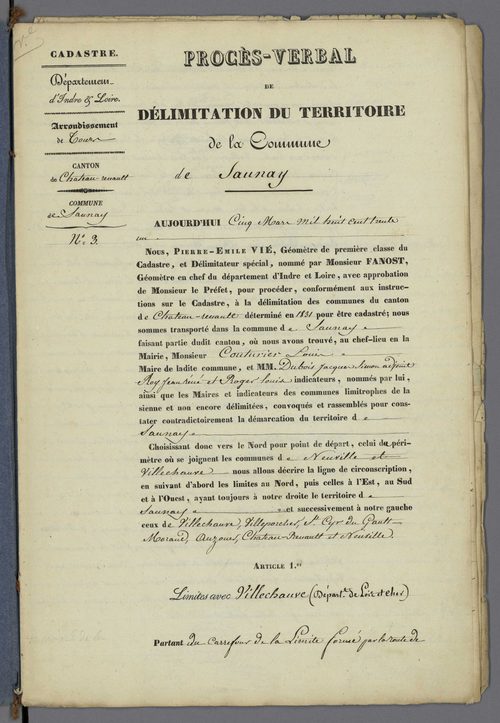 CADASTRE.
Département
d'Indre & Loire.
Arrondissement
de Tours
CANTON
de Château-renault
COMMUNE
de Saunay
N.º 3.
PROCÈS-VERBAL
DE
DÉLIMITATION DU TERRITOIRE
de la Commune
de Saunay
AUJOURD'HUI Cinq Mars mil huit cent trente
un
NOUS, PIERRE-EMILE VIÉ, Géomètre de première classe du
Cadastre, et Délimitateur spécial, nommé par Monsieur FANOST,
Géomètre en chef du département d'Indre et Loire, avec approbation
de Monsieur le Préfet, pour procéder, conformément aux instruc-
tions sur le Cadastre, à la délimitation des communes du canton
de Château-renault déterminé en 1831 pour être cadastré; nous
sommes transporté dans la commune de Saunay
faisant partie dudit canton, où nous avons trouvé, au chef-lieu en la
Mairie, Monsieur Couturier Louis
Maire de ladite commune, et MM. Dubois jacques Simon adjoint
Roy jean rené et Roger louis indicateurs, nommés par lui,
ainsi que les Maires et indicateurs des communes limitrophes de la
sienne et non encore délimitées, convoqués et rassemblés pour cons-
tater contradictoirement la démarcation du territoire de
Saunay
Choisissant donc vers le Nord pour point de départ, celui du péri-
mètre où se joignent les communes de Neuville et
Villechauve nous allons décrire la ligne de circonscription,
en suivant d'abord les limites au Nord, puis celles à l'Est, au Sud
et à l'Ouest, ayant toujours à notre droite le territoire de
Saunay et successivement à notre gauche
ceux de Villechauve, Villeporcher, St. Cyr du Gault
Morand, Auzouer, Château-Renault et Neuville.
ARTICLE 1.er
Limites avec Villechauve (Départ.t de Loir et cher)
Partant du carrefour de la Limite formé par la route de